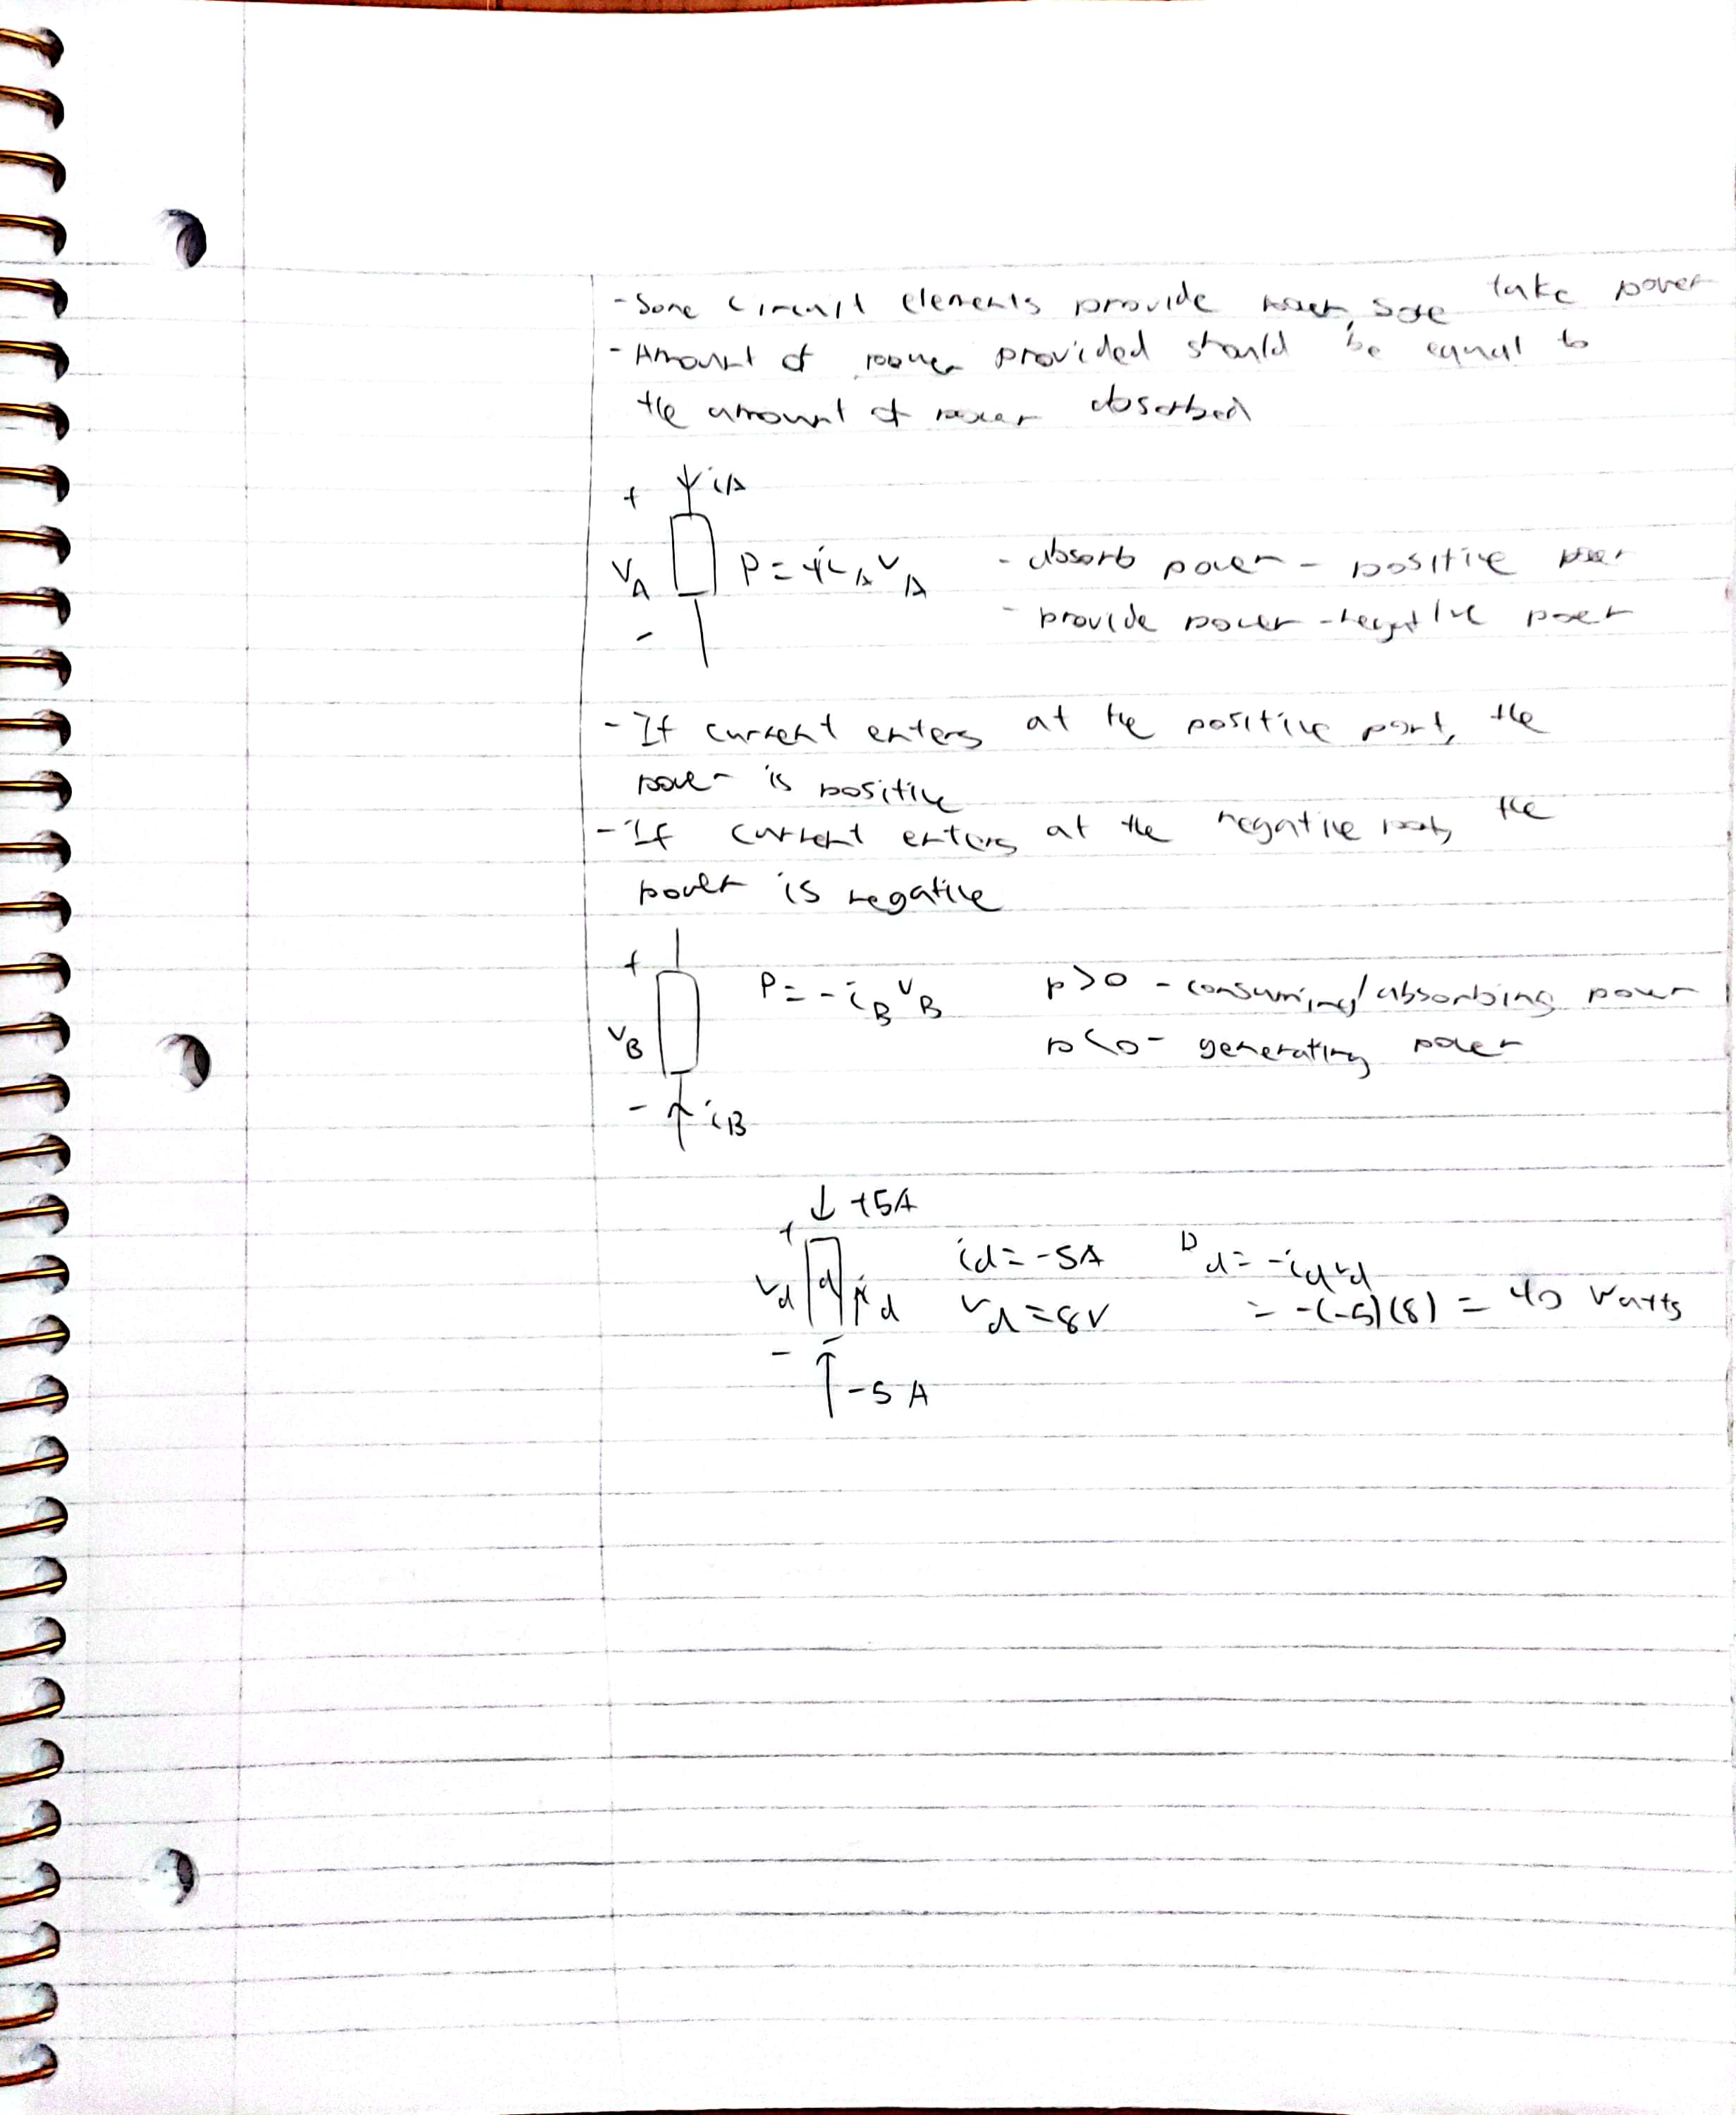 - Some circuit elements provide power, some take power
- Amount of power provided should be equal to
the amount of power absorbed
+ iA
VA P = +iA VA - absorb power - positive power
- - provide power - negative power
- If current enters at the positive port, the
power is positive
- If current enters at the negative port, the
power is negative
+ P = -iB VB p>0 - consuming/absorbing power
VB p<0 - generating power
- iB
↓ +5A
+ id = -5A Pd = -id vd
vd d id vd = 8V = -(-5)(8) = 40 watts
-
↑ -5 A